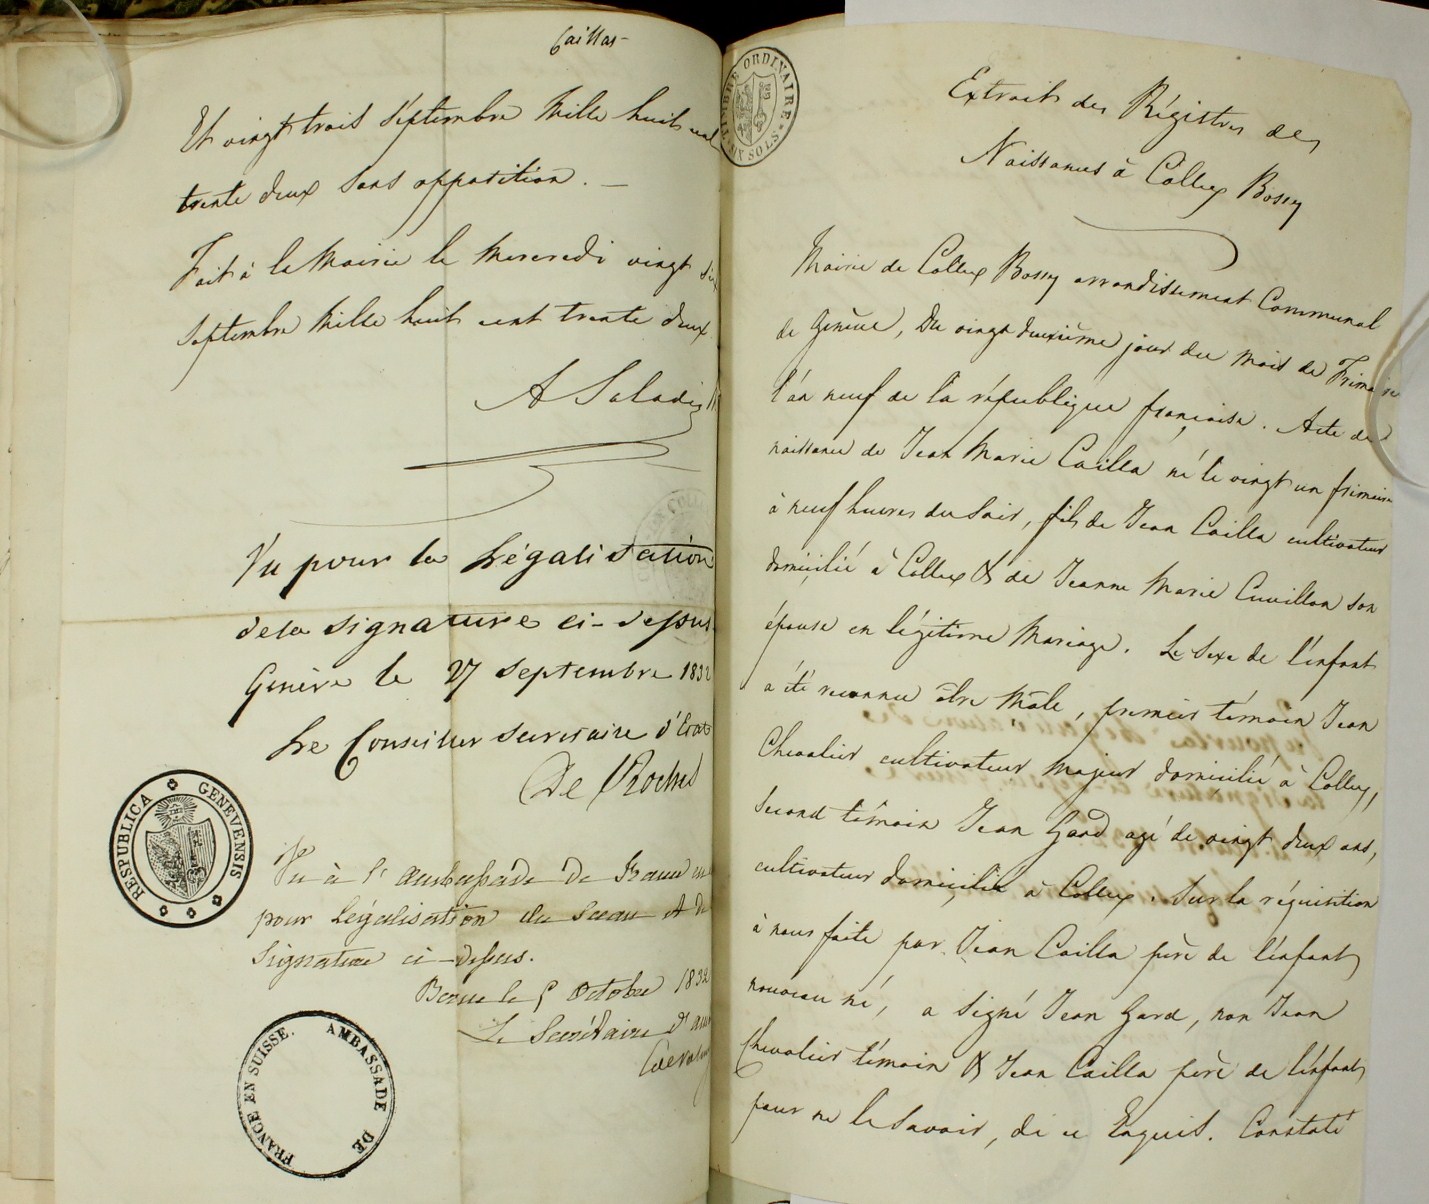 Caillas
Et vingt trois Septembre Mille huit cent
trente deux sans opposition. —
Fait à la Mairie le Mercredi vingt six
Septembre Mille huit cent trente deux
A Saladin
Vu pour la Légalisation
de la signature ci-dessus
Genève le 27 Septembre 1832
Le Conseiller Secrétaire d'Etat
De Roches
RESPUBLICA GENEVENSIS
Vu à l'ambassade de France en
pour légalisation du Sceau et de
Signature ci-dessus.
Berne le 5 Octobre 1832
Le Secrétaire d'am
AMBASSADE DE FRANCE EN SUISSE.
TIMBRE ORDINAIRE SIX SOLS
Extrait des Régistres des
Naissances à Collex Bossy
Mairie de Collex Bossy arrondissement Communal
de Genève, Du vingt deuxième jour du mois de Frimaire
l'an neuf de la république française. Acte de
naissance de Jean Marie Cailla né le vingt un frimaire
à neuf heures du Soir, fils de Jean Cailla cultivateur
domicilié à Collex & de Jeanne Marie Cuvillon son
épouse en légitime Mariage. Le Sexe de l'enfant
a été reconnu être Mâle, premier témoin Jean
Chevalier cultivateur Majeur domicilié à Collex,
Second témoin Jean Gard agé de vingt deux ans,
cultivateur domicilié à Collex. Sur la réquisition
à nous faite par Jean Cailla père de l'enfant
nouveau né, a Signé Jean Gard, non Jean
Chevalier témoin & Jean Cailla père de l'enfant
pour ne le Savoir, de ce Enquis. Constaté